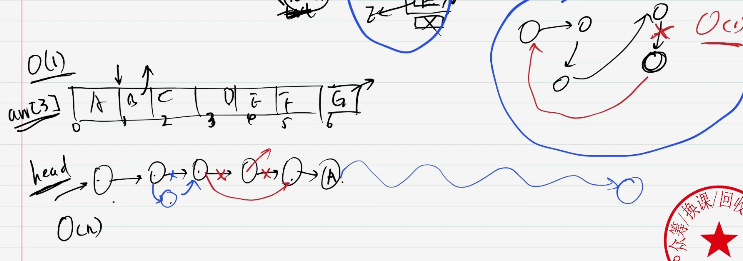 O(1)
O(1)
arr[3]
A B C D E F G
0 1 2 3 4 5 6
head
A
O(n)
众筹/换课/回收